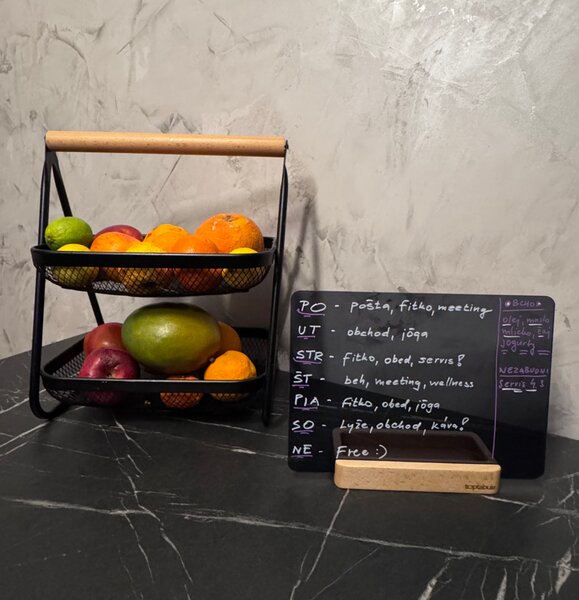 PO - pošta, fitko, meeting
UT - obchod, jóga
STR - fitko, obed, servis?
ŠT - beh, meeting, wellness
PIA - fitko, obed, jóga
SO - Lyže, obchod, káva?
NE - Free :)
OBCHOD
olej, maslo
mlieko, čaj
jogurty
NEZABUDNI
Servis
toptabule